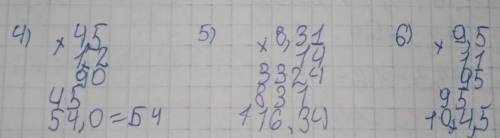 4) × 4,5
12
90
45
54,0=54
5) × 8,31
14
3324
831
116,34
6) × 9,5
11
95
95
104,5